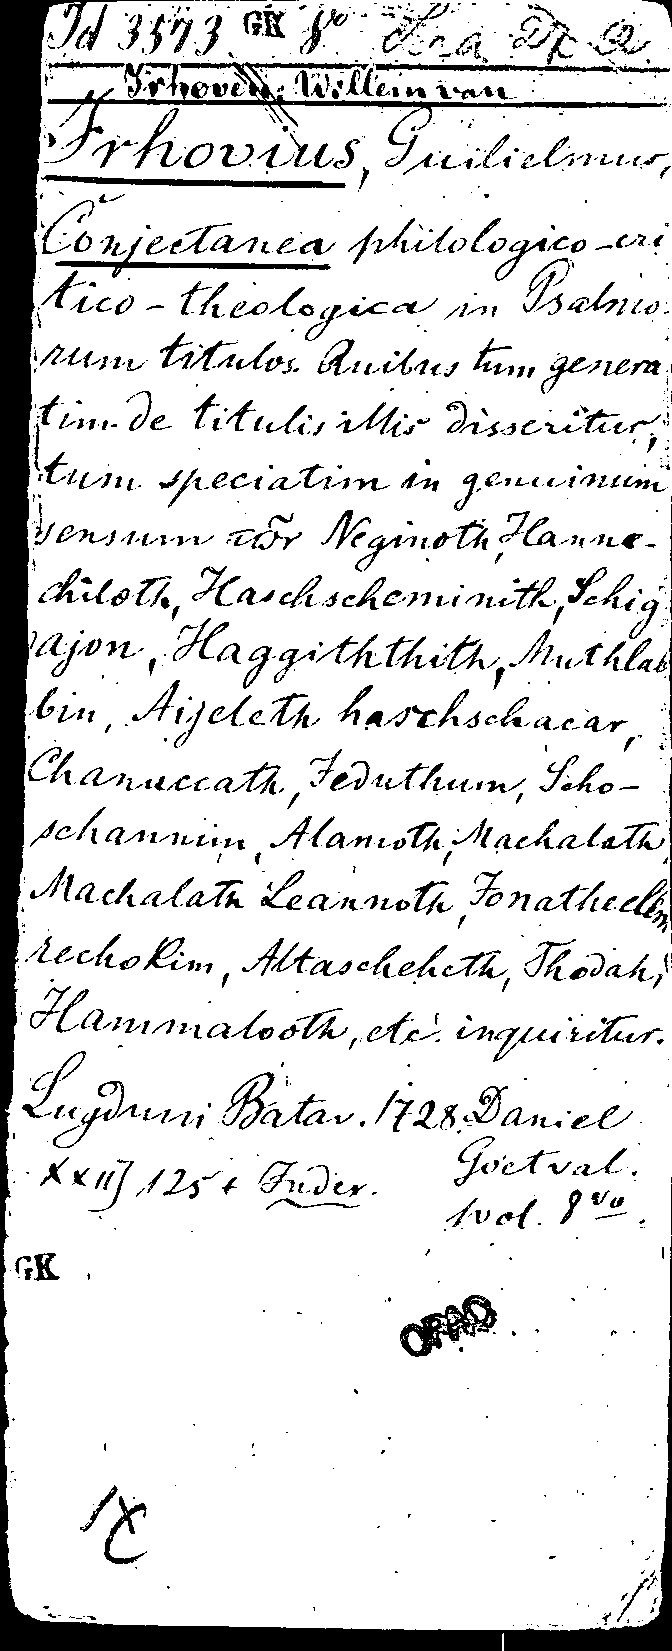 Id 3573 GK 8º
Irhoven, Willem van
Irhovius, Guilielmus,
Conjectanea philologico-cri
tico-theologica in Psalmo
rum titulos. Quibus tum genera
tim de titulis illis disseritur,
tum speciatim in genuinum
sensum τῶν Neginoth, Hanne-
chiloth, Haschscheminith, Schig
ajon, Haggiththith, Muthlab
bin, Aijeleth haschschacar,
Chanuccath, Jeduthum, Scho-
schannim, Alamoth, Machalath
Machalath Leannoth, Jonathelem
rechokim, Altascheheth, Thodah,
Hammalooth, etc. inquiritur.
Lugduni Batav. 1728. Daniel
Goetval.
XXII] 125 + Index.
1 vol. 8vo.
GK
ORAD